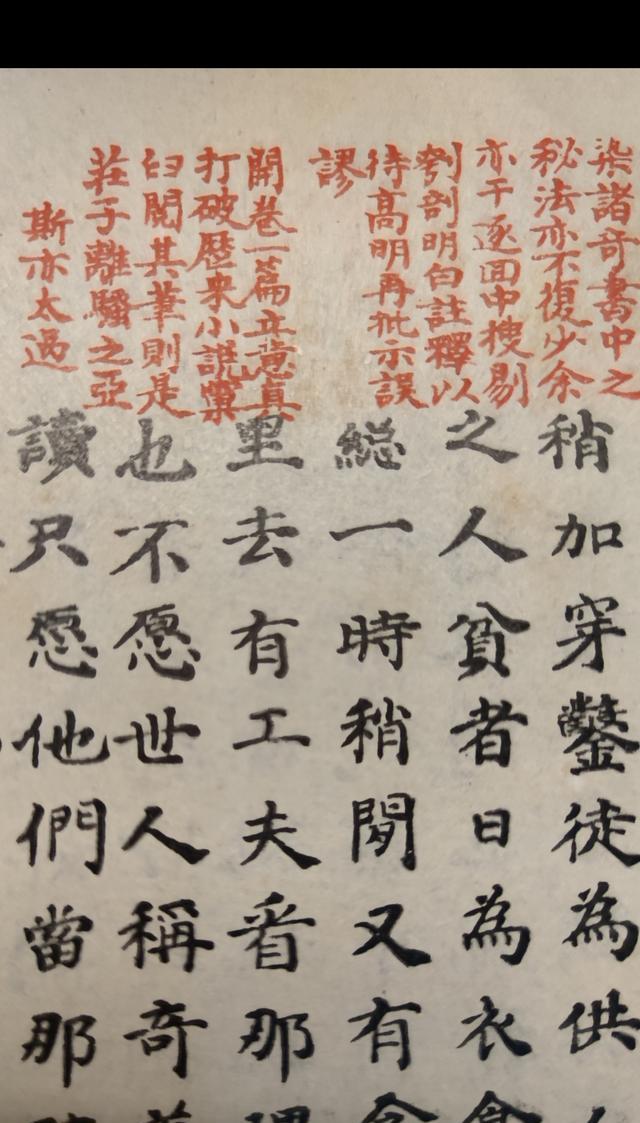 染諸奇書中之
秘法亦不復少余
亦干逐回中搜剔
刳剖明白註釋以
待高明再批示誤
謬
開卷一篇立意真
打破歷來小說窠
臼閱其筆則是
莊子離騷之亞
斯亦太過
稍加穿鑿徒為供人
之人貧者日為衣食
総一時稍閒又有貪
里去有工夫看那理
也不愿世人稱奇
讀只愿他們當那